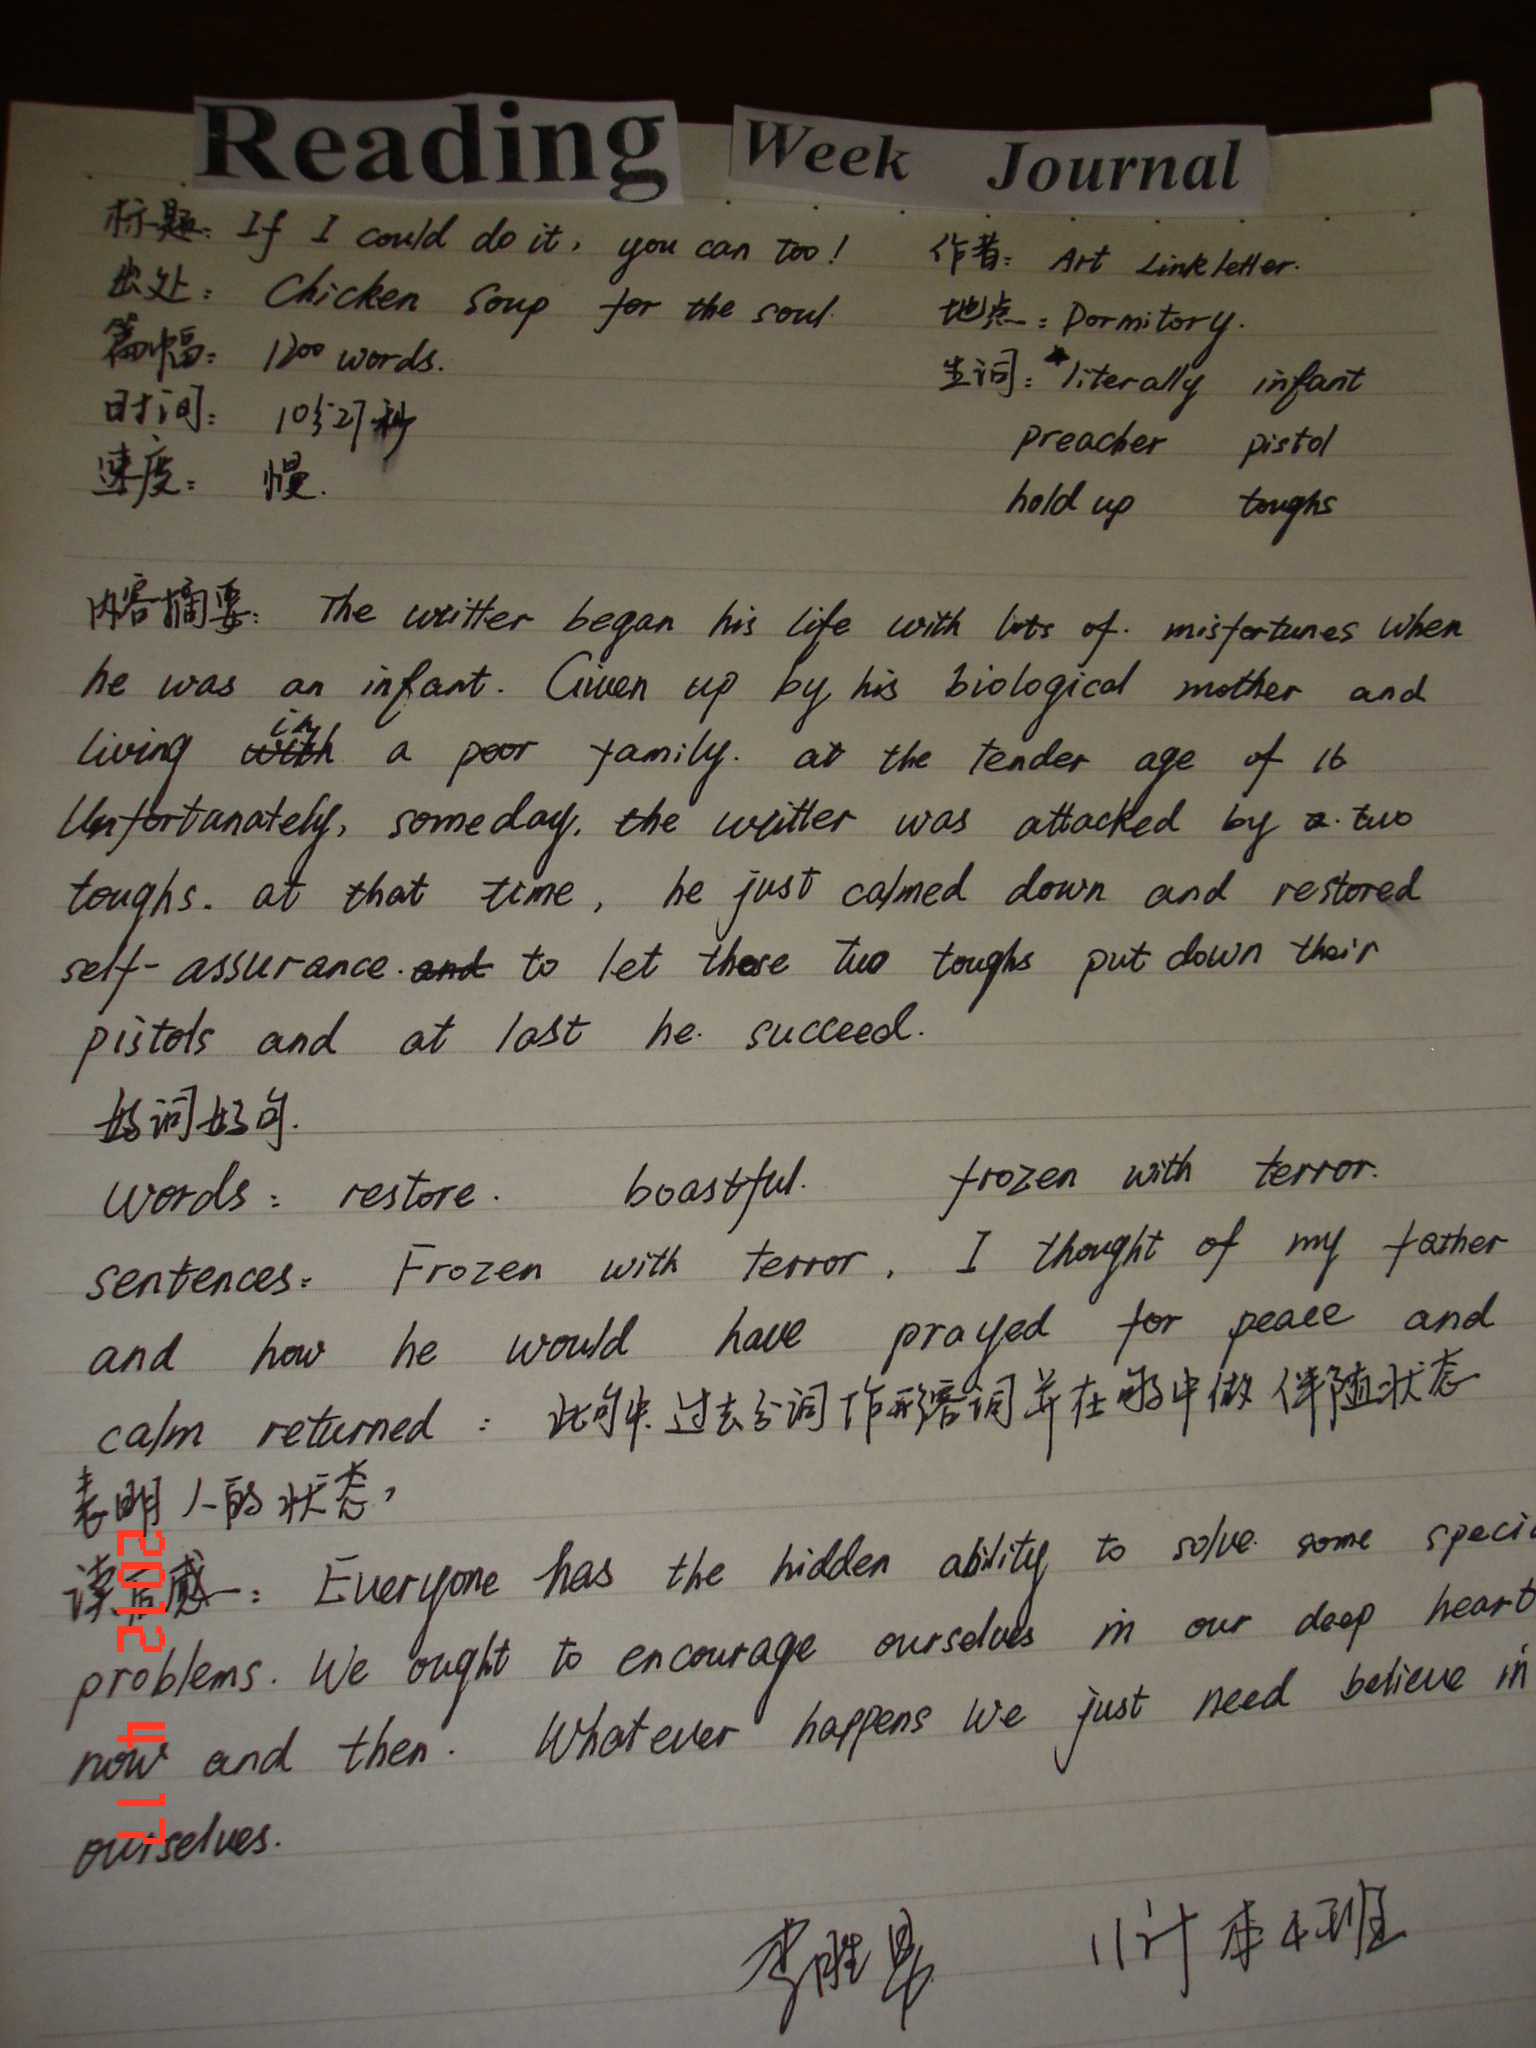 Reading Week Journal
标题: If I could do it, you can too!
作者: Art Linkletter.
出处: Chicken Soup for the soul.
地点: Dormitory.
篇幅: 1200 words.
生词: literally infant
时间: 10分27秒
preacher pistol
速度: 慢.
hold up toughs
内容摘要: The writter began his life with lots of misfortunes when
he was an infant. Given up by his biological mother and
living in a poor family. at the tender age of 16
Unfortunately, someday, the writter was attacked by two
toughs. at that time, he just calmed down and restored
self-assurance. to let those two toughs put down their
pistols and at last he succeed.
好词好句.
words: restore. boastful. frozen with terror.
sentences: Frozen with terror, I thought of my father
and how he would have prayed for peace and
calm returned: 此句中过去分词作形容词并在句中做伴随状态
表明人的状态,
读后感: Everyone has the hidden ability to solve some specia
problems. We ought to encourage ourselves in our deep heart
now and then. Whatever happens we just need believe in
ourselves.
2012 4 17
李胜 11计本4班